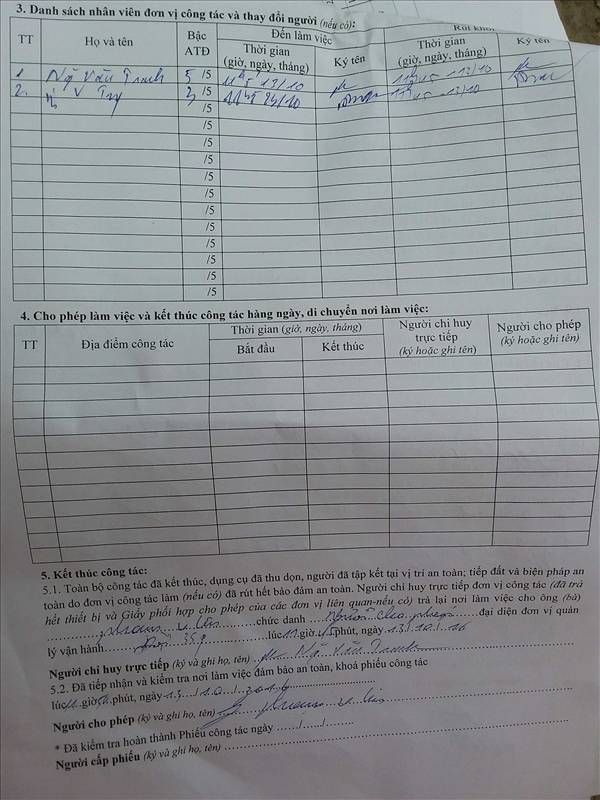 3. Danh sách nhân viên đơn vị công tác và thay đổi người (nếu có):
TT Họ và tên Bậc ATĐ Đến làm việc Rút khỏi
Thời gian (giờ, ngày, tháng) Ký tên Thời gian (giờ, ngày, tháng) Ký tên
1 Ngô Văn 5 /5 13/10 13/10
2. V 3 /5 13/10
/5
/5
/5
/5
/5
/5
/5
/5
/5
/5
/5
/5
4. Cho phép làm việc và kết thúc công tác hàng ngày, di chuyển nơi làm việc:
TT Địa điểm công tác Thời gian (giờ, ngày, tháng) Người chỉ huy trực tiếp (ký hoặc ghi tên) Người cho phép (ký hoặc ghi tên)
Bắt đầu Kết thúc
5. Kết thúc công tác:
5.1. Toàn bộ công tác đã kết thúc, dụng cụ đã thu dọn, người đã tập kết tại vị trí an toàn; tiếp đất và biện pháp an
toàn do đơn vị công tác làm (nếu có) đã rút hết bảo đảm an toàn. Người chỉ huy trực tiếp đơn vị công tác (đã trả
hết thiết bị và Giấy phối hợp cho phép của các đơn vị liên quan-nếu có) trả lại nơi làm việc cho ông (bà)
chức danh người cho phép đại diện đơn vị quản
lý vận hành lúc giờ phút, ngày 13/10/16
Người chỉ huy trực tiếp (ký và ghi họ, tên) Ngô Văn
5.2. Đã tiếp nhận và kiểm tra nơi làm việc đảm bảo an toàn, khoá phiếu công tác
lúc giờ phút, ngày 13/10/2016
Người cho phép (ký và ghi họ, tên)
* Đã kiểm tra hoàn thành Phiếu công tác ngày ....../....../......
Người cấp phiếu (ký và ghi họ, tên)